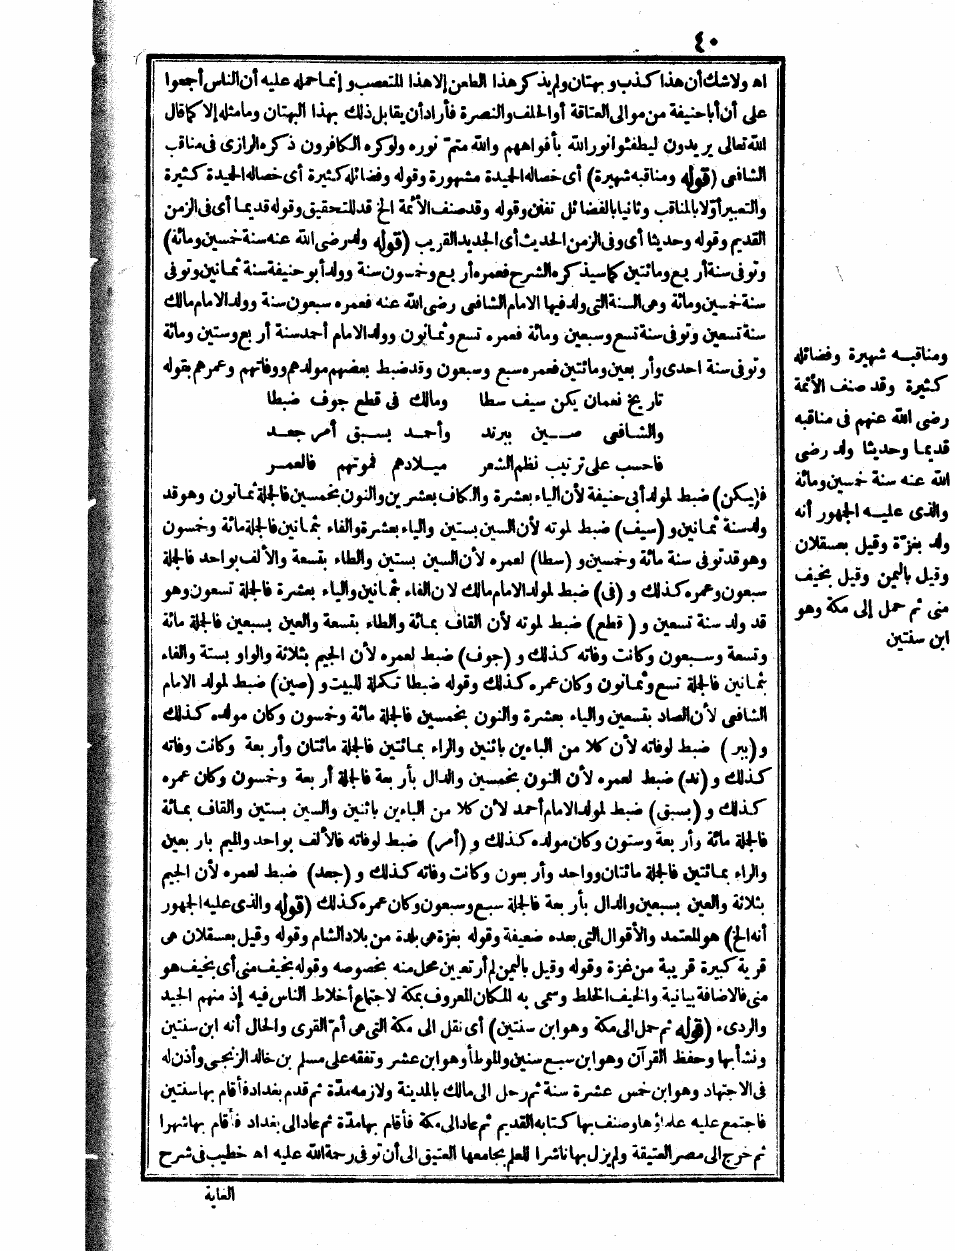 ٤٠
اه ولا شك أن هذا كذب و بهتان ولم يذكر هذا الطاعن إلا هذا للتعصب و إنما حمله عليه أن الناس أجمعوا
على أن أبا حنيفة من موالى العتاقة أو الحلف والنصرة فأراد أن يقابل ذلك بهذا البهتان وما مثله إلا كما قال
الله تعالى يريدون ليطفئوا نور الله بأفواههم والله متمّ نوره ولو كره الكافرون ذكره الرازى فى مناقب
الشافعى (قوله ومناقبه شهيرة) أى خصاله الحميدة مشهورة وقوله وفضائله كثيرة أى خصاله الحميدة كثيرة
والتعبير أوّلا بالمناقب وثانيا بالفضائل تفنن وقوله وقد صنف الأئمة الخ قد للتحقيق وقوله قديما أى فى الزمن
القديم وقوله وحديثا أى وفى الزمن الحديث أى الجديد القريب (قوله ولد رضى الله عنه سنة خمسين ومائة)
وتوفى سنة أربع ومائتين كما سيذكره الشرح فعمره أربع وخمسون سنة وولد أبو حنيفة سنة ثمانين وتوفى
سنة خمسين ومائة وهى السنة التى ولد فيها الامام الشافعى رضى الله عنه فعمره سبعون سنة وولد الامام مالك
سنة تسعين وتوفى سنة تسع وسبعين ومائة فعمره تسع وثمانون وولد الامام أحمد سنة أربع وستين ومائة
وتوفى سنة احدى وأربعين ومائتين فعمره سبع وسبعون وقد ضبط بعضهم مولدهم ووفاتهم وعمرهم بقوله
تاريخ نعمان يكن سيف سطا ومالك فى قطع جوف ضبطا
والشافعى صين ببرند وأحمد بسبق أمر جعد
فاحسب على ترتيب نظم الشعر ميلادهم فموتهم فالعمر
ف(يكن) ضبط لمولد أبى حنيفة لأن الياء بعشرة والكاف بعشرين والنون بخمسين فالجلة ثمانون وهو قد
ولد سنة ثمانين و (سيف) ضبط لموته لأن السين بستين والياء بعشرة والفاء بثمانين فالجلة مائة وخمسون
وهو قد توفى سنة مائة وخمسين و (سطا) لعمره لأن السين بستين والطاء بتسعة والألف بواحد فالجلة
سبعون وعمره كذلك و (فى) ضبط لمولد الامام مالك لان الفاء بثمانين والياء بعشرة فالجلة تسعون وهو
قد ولد سنة تسعين و (قطع) ضبط لموته لأن القاف بمائة والطاء بتسعة والعين بسبعين فالجلة مائة
وتسعة وسبعون وكانت وفاته كذلك و (جوف) ضبط لعمره لأن الجيم بثلاثة والواو بستة والفاء
بثمانين فالجلة تسع وثمانون وكان عمره كذلك وقوله ضبطا تكملة للبيت و (صين) ضبط لمولد الامام
الشافعى لأن الصاد بتسعين والياء بعشرة والنون بخمسين فالجلة مائة وخمسون وكان مولده كذلك
و (ببر) ضبط لوفاته لأن كلا من الباءين باثنين والراء بمائتين فالجلة مائتان وأربعة وكانت وفاته
كذلك و (ند) ضبط لعمره لأن النون بخمسين والدال بأربعة فالجلة أربعة وخمسون وكان عمره
كذلك و (بسبق) ضبط لمولد الامام أحمد لأن كلا من الباءين باثنين والسين بستين والقاف بمائة
فالجلة مائة وأربعة وستون وكان مولده كذلك و (أمر) ضبط لوفاته فالألف بواحد والميم بار بعين
والراء بمائتين فالجلة مائتان وواحد وأربعون وكانت وفاته كذلك و (جعد) ضبط لعمره لأن الجيم
بثلاثة والعين بسبعين والدال بأربعة فالجلة سبع وسبعون وكان عمره كذلك (قوله والذى عليه الجمهور
أنه الخ) هو المعتمد والأقوال التى بعده ضعيفة وقوله بغزة هى بلدة من بلاد الشام وقوله وقيل بعسقلان هى
قرية كبيرة قريبة من غزة وقوله وقيل باليمن لم أر تعيين محل منه بخصوصه وقوله بخيف منى أى بخيف هو
منى فالاضافة بيانية والخيف الخلط وسمى به المكان المعروف بمكة لاجتماع أخلاط الناس فيه إذ منهم الجيد
والردىء (قوله ثم حمل الى مكة وهو ابن سنتين) أى نقل الى مكة التى هى أم القرى والحال أنه ابن سنتين
ونشأ بها وحفظ القرآن وهو ابن سبع سنين والموطأ وهو ابن عشر وتفقه على مسلم بن خالد الزنجى وأذن له
فى الاجتهاد وهو ابن خمس عشرة سنة ثم رحل الى مالك بالمدينة ولازمه مدّة ثم قدم بغداد فأقام بها سنتين
فاجتمع عليه علماؤها وصنف بها كتابه القديم ثم عاد الى مكة فأقام بها مدّة ثم عاد الى بغداد فأقام بها شهرا
ثم خرج الى مصر العتيقة ولم يزل بها ناشرا للعلم بجامعها العتيق الى أن توفى رحمة الله عليه اه خطيب فى شرح
الغاية
ومناقبه شهيرة وفضائله
كثيرة وقد صنف الأئمة
رضى الله عنهم فى مناقبه
قديما وحديثا ولد رضى
الله عنه سنة خمسين ومائة
والذى عليه الجمهور أنه
ولد بغزّة وقيل بعسقلان
وقيل باليمن وقيل بخيف
منى ثم حمل إلى مكة وهو
ابن سنتين